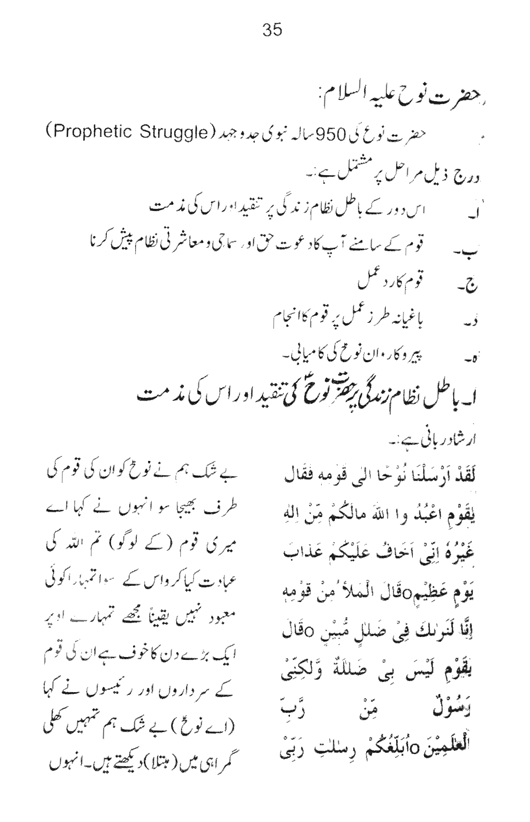 35
حضرت نوح علیہ السلام:
حضرت نوحؑ کی 950 سالہ نبوی جدوجہد (Prophetic Struggle)
درج ذیل مراحل پر مشتمل ہے:۔
ا۔ اس دور کے باطل نظام زندگی پر تنقید اور اس کی مذمت
ب۔ قوم کے سامنے آپ کا دعوت حق اور سماجی و معاشرتی نظام پیش کرنا
ج۔ قوم کا ردعمل
د۔ باغیانہ طرز عمل پر قوم کا انجام
ہ۔ پیروکاران نوحؑ کی کامیابی۔
ا۔ باطل نظام زندگی پر حضرت نوحؑ کی تنقید اور اس کی مذمت
ارشاد ربانی ہے:۔
لَقَدْ اَرْسَلْنَا نُوْحًا الٰی قومِه فقَال
یٰقَوْمِ اعْبُدُ وا اللہَ مالَکُمْ مِّنْ اِلٰهٍ
غَیْرُهٗ اِنِّیْ اَخَافُ عَلَیْکُمْ عَذَابَ
یَوْمٍ عَظِیْمٍo قَالَ الْمَلَاُ مِنْ قَوْمِهٖ
اِنَّا لَنَرٰىكَ فِیْ ضَلٰلٍ مُّبِیْنٍo قَالَ
یٰقَوْمِ لَیْسَ بِیْ ضَلٰلَةٌ وَّلٰکِنِّیْ
رَسُوْلٌ مِّنْ رَّبِّ
الْعٰلَمِیْنَo اُبَلِّغُکُمْ رِسٰلٰتِ رَبِّیْ
بے شک ہم نے نوحؑ کو ان کی قوم کی
طرف بھیجا سو انہوں نے کہا اے
میری قوم (کے لوگو) تم اللہ کی
عبادت کیا کرو اس کے سوا تمہارا کوئی
معبود نہیں یقیناً مجھے تمہارے اوپر
ایک بڑے دن کا خوف ہے ان کی قوم
کے سرداروں اور رئیسوں نے کہا
(اے نوحؑ) بے شک ہم تمہیں کھلی
گمراہی میں (مبتلا) دیکھتے ہیں۔ انہوں